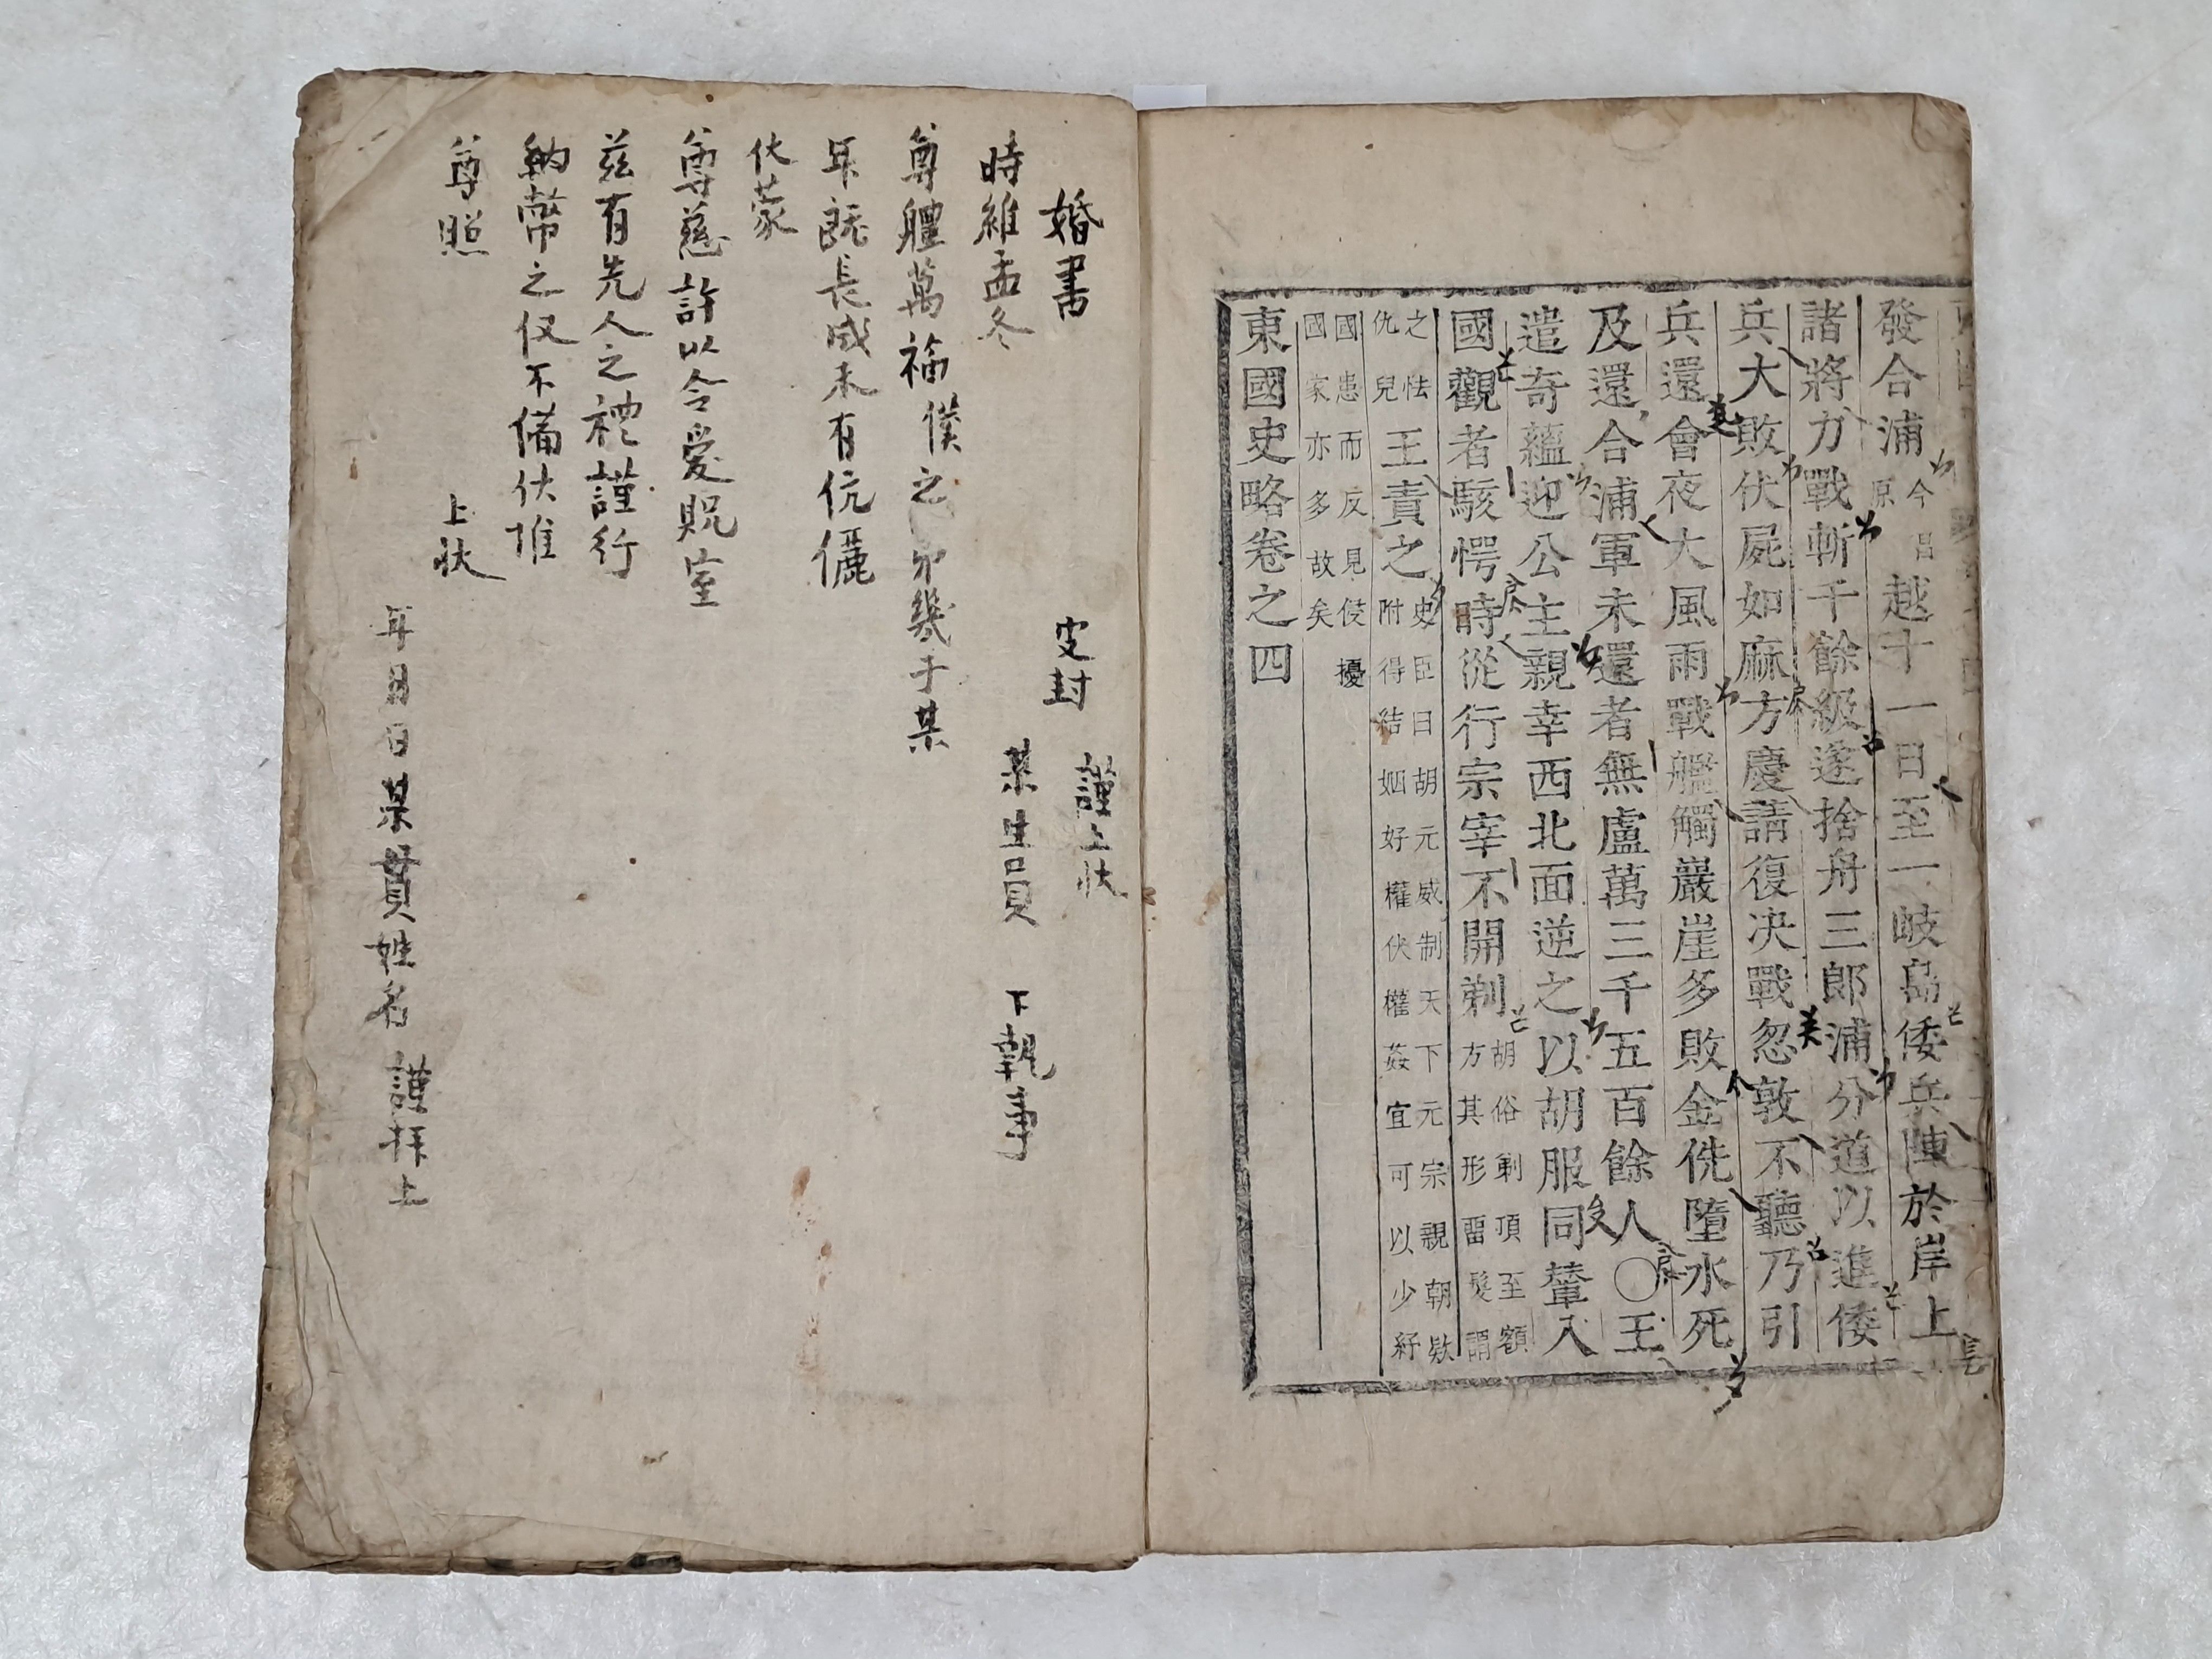 發合浦今昌原越十一日至一岐島倭兵陳於岸上
諸將力戰斬千餘級遂捨舟三郞浦分道以進倭
兵大敗伏屍如麻方慶請復決戰忽敦不聽乃引
兵還會夜大風雨戰艦觸巖崖多敗金侁墮水死
及還合浦軍未還者無慮萬三千五百餘人〇王
遣奇蘊迎公主親幸西北面逆之以胡服同輦入
國觀者駭愕時從行宗宰不開剃胡俗剃頂至額方其形留髮謂
之怯仇兒王責之史臣曰胡元威制天下元宗親朝欵附得結姻好權伏權姦宜可以少紓
國患而反見侵擾國家亦多故矣
東國史略卷之四
婚書
皮封
謹上狀
某生員 下執事
時維孟冬
尊體萬福僕之第幾子某
年旣長成未有伉儷
伏蒙
尊慈許以令愛貺室
茲有先人之禮謹行
納幣之仪不備伏惟
尊照
上狀
年月日某貫姓名 謹拜上